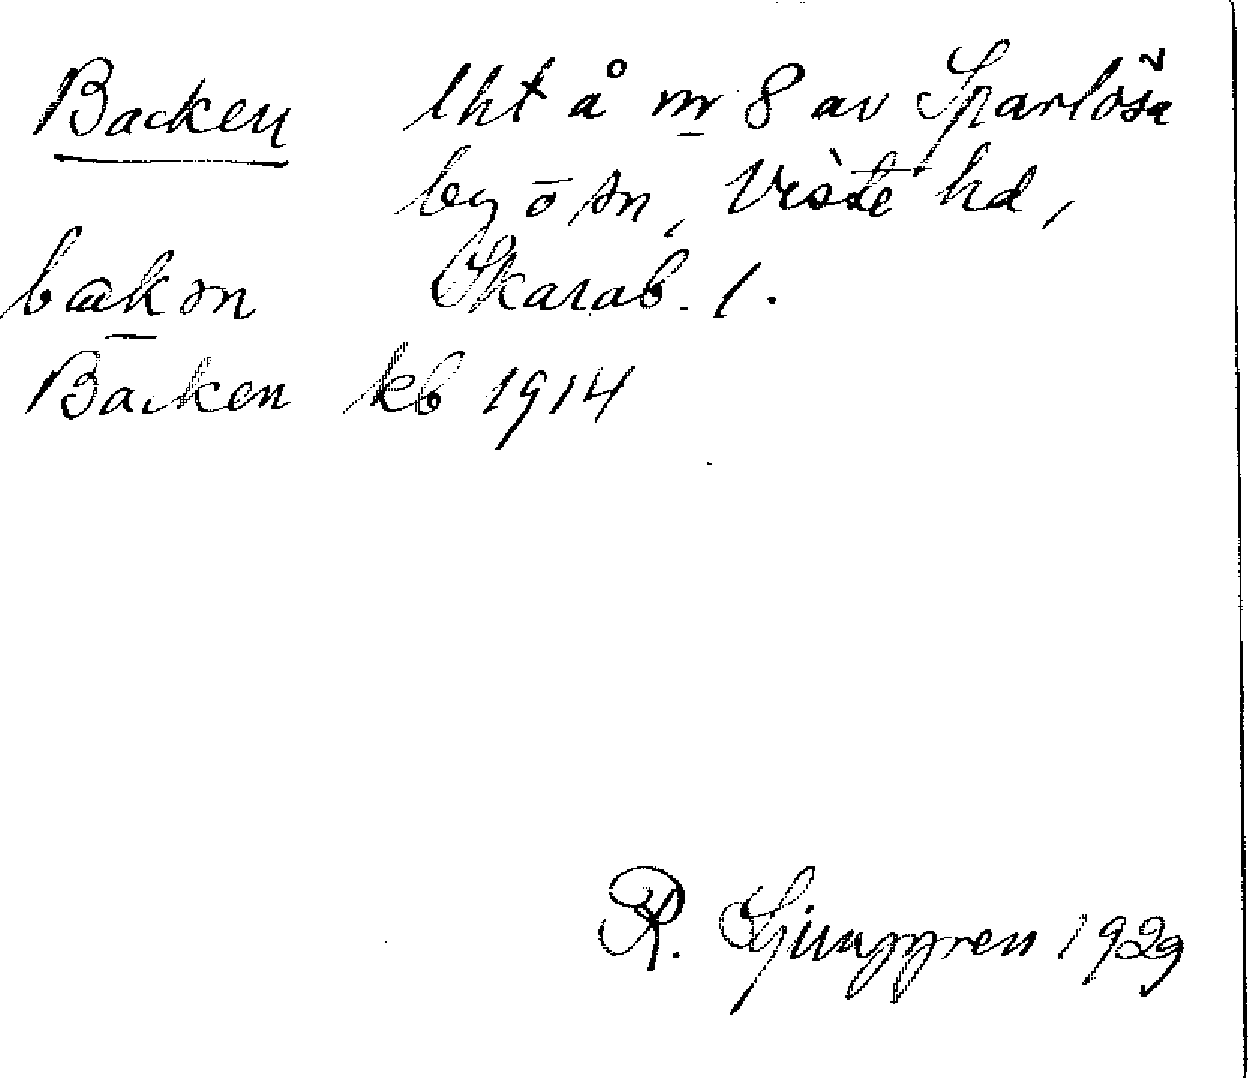 Backen lht å nr 8 av Sparlösa
by o sn, Viste hd,
bakən Skarab. l.
Backen kb 1914
R. Ljunggren 1929